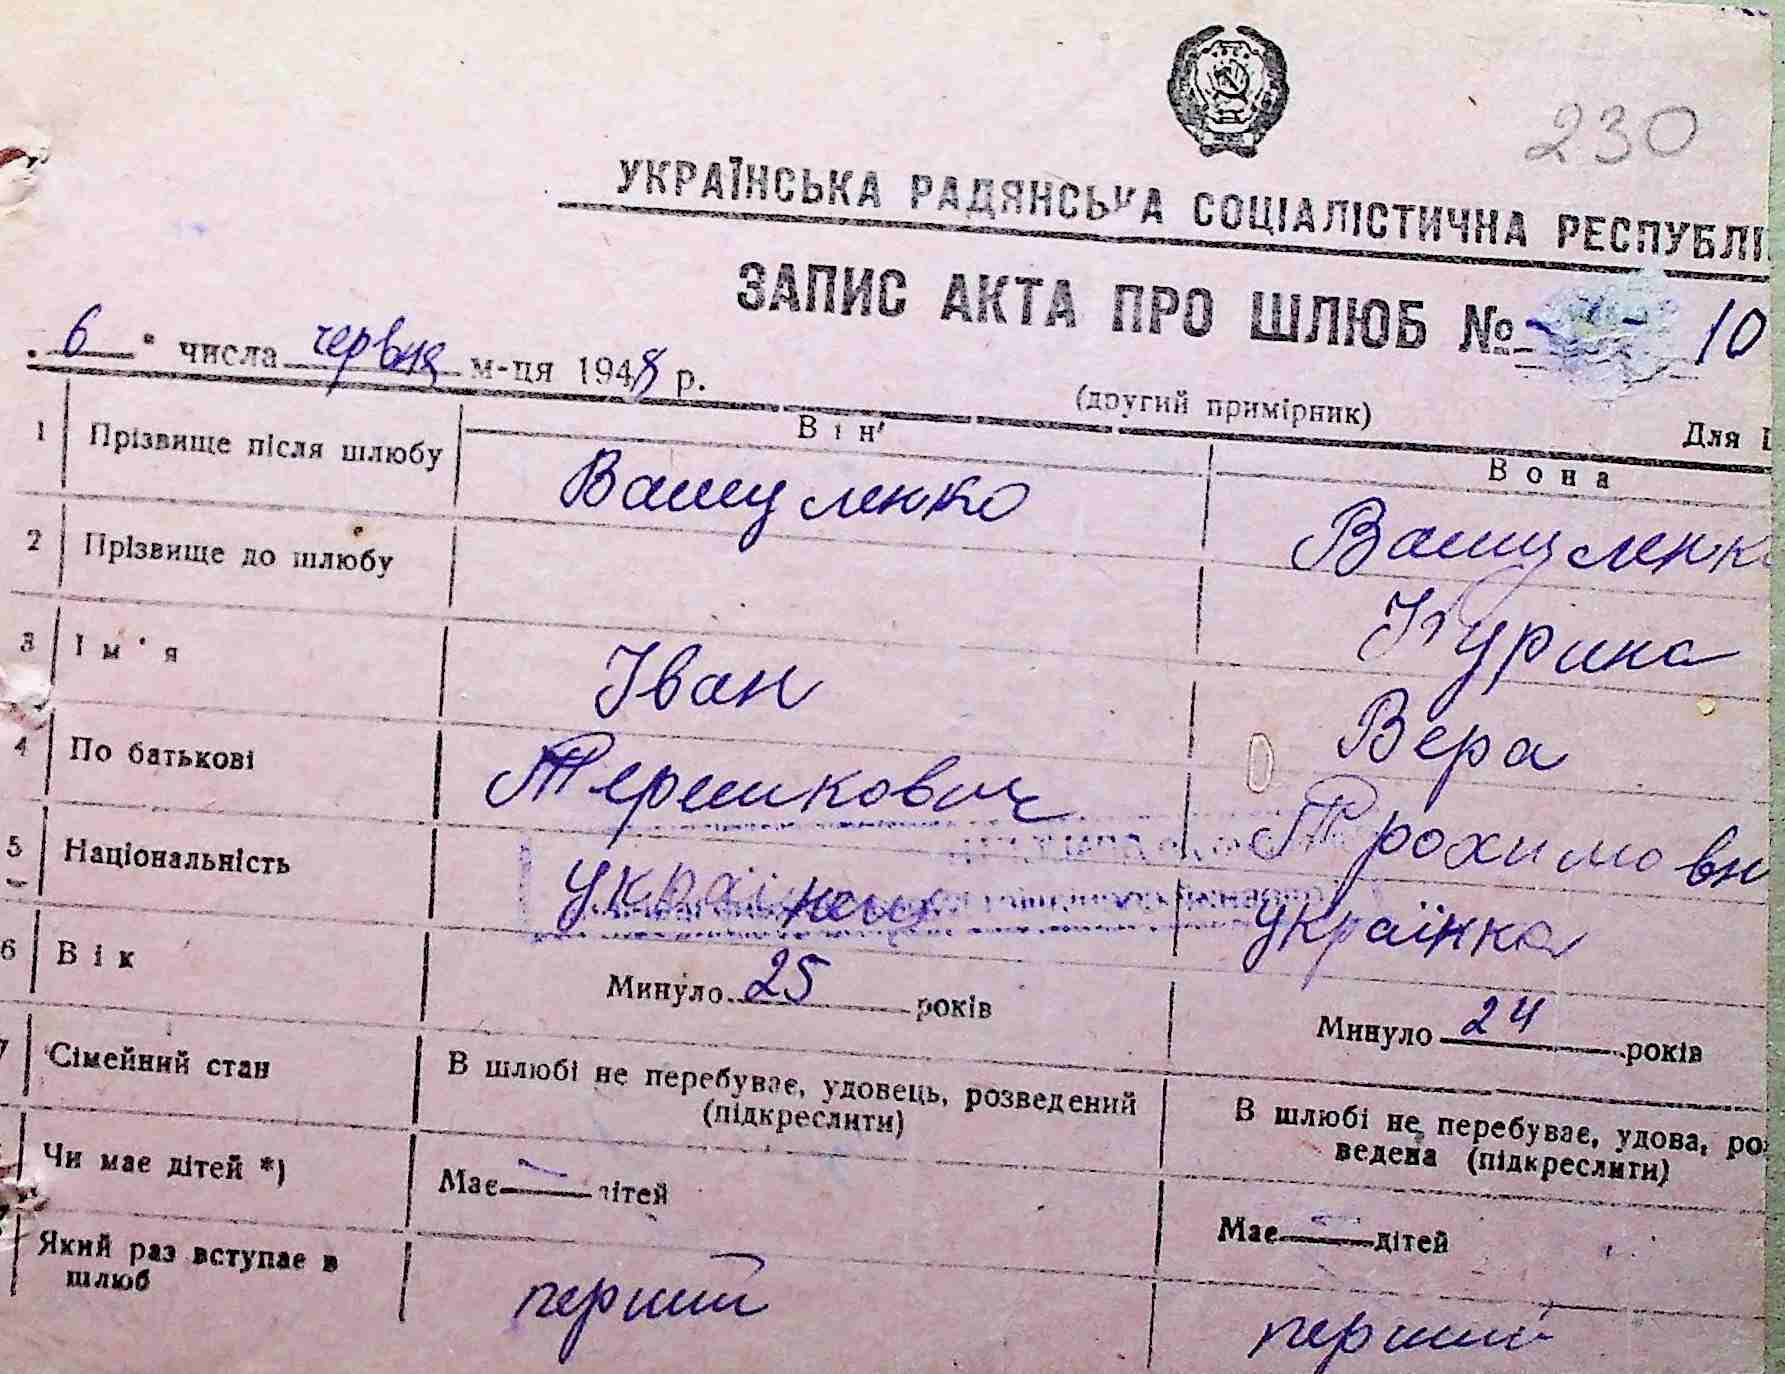 230
УКРАЇНСЬКА РАДЯНСЬКА СОЦІАЛІСТИЧНА РЕСПУБЛІ
ЗАПИС АКТА ПРО ШЛЮБ № 10
„ 6 " числа червня м-ця 1948 р.
(другий примірник)
Для
Він Вона
1 Прізвище після шлюбу Вашуленко Вашуленк
2 Прізвище до шлюбу Курина
3 Ім'я Іван Вера
4 По батькові Терешкович Трохимовн
5 Національність українец українка
6 Вік Минуло 25 років Минуло 24 років
7 Сімейний стан В шлюбі не перебуває, удовець, розведений В шлюбі не перебуває, удова, роз
(підкреслити) ведена (підкреслити)
Чи має дітей *) Має — дітей Має — дітей
Який раз вступає в перший перший
шлюб